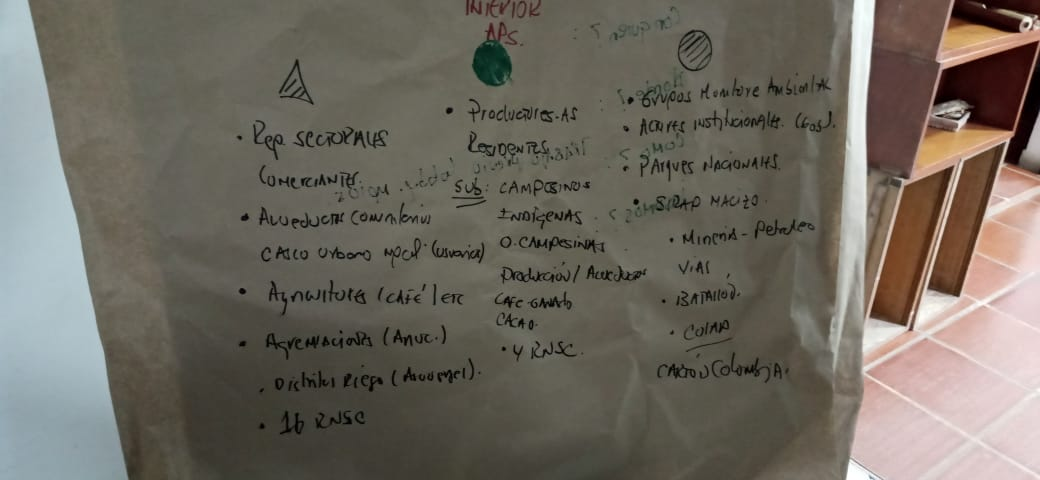 INTERIOR
APS.
• Rep. SECTORIALES
COMERCIANTES.
• Acueductos comunitarios
CASCO Urbano mpal. (usuarios)
• Agricultores / CAFÉ / etc
• Agremiaciones (Anuc.)
• Distritos Riego
• 16 RNSC
• Productores-AS
RESIDENTES
SUB: CAMPESINOS
INDÍGENAS
O. CAMPESINAS
Producción / Acueductos
CAFE-GANADO
CACAO.
• 4 RNSC.
• Grupos Monitoreo Ambiental
• ACTORES INSTITUCIONALES.
• PARQUES NACIONALES.
• SIRAP MACIZO.
• MINERÍA - Petroleo
VIAS
• BATALLÓN.
CARTÓN COLOMBIA.